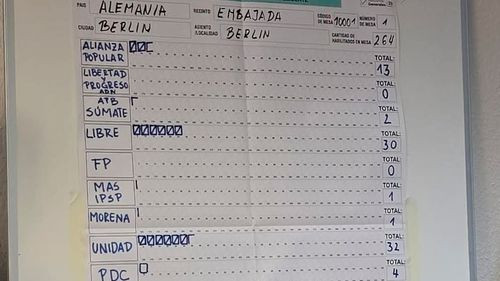 PAIS ALEMANIA RECINTO EMBAJADA CÓDIGO DE MESA 10001 NÚMERO DE MESA 1
CIUDAD BERLIN ASIENTO /LOCALIDAD BERLIN CANTIDAD DE HABILITADOS EN MESA 264
ALIANZA POPULAR TOTAL: 13
LIBERTAD Y PROGRESO ADN TOTAL: 0
APB SÚMATE TOTAL: 2
LIBRE TOTAL: 30
FP TOTAL: 0
MAS IPSP TOTAL: 1
MORENA TOTAL: 1
UNIDAD TOTAL: 32
PDC TOTAL: 4